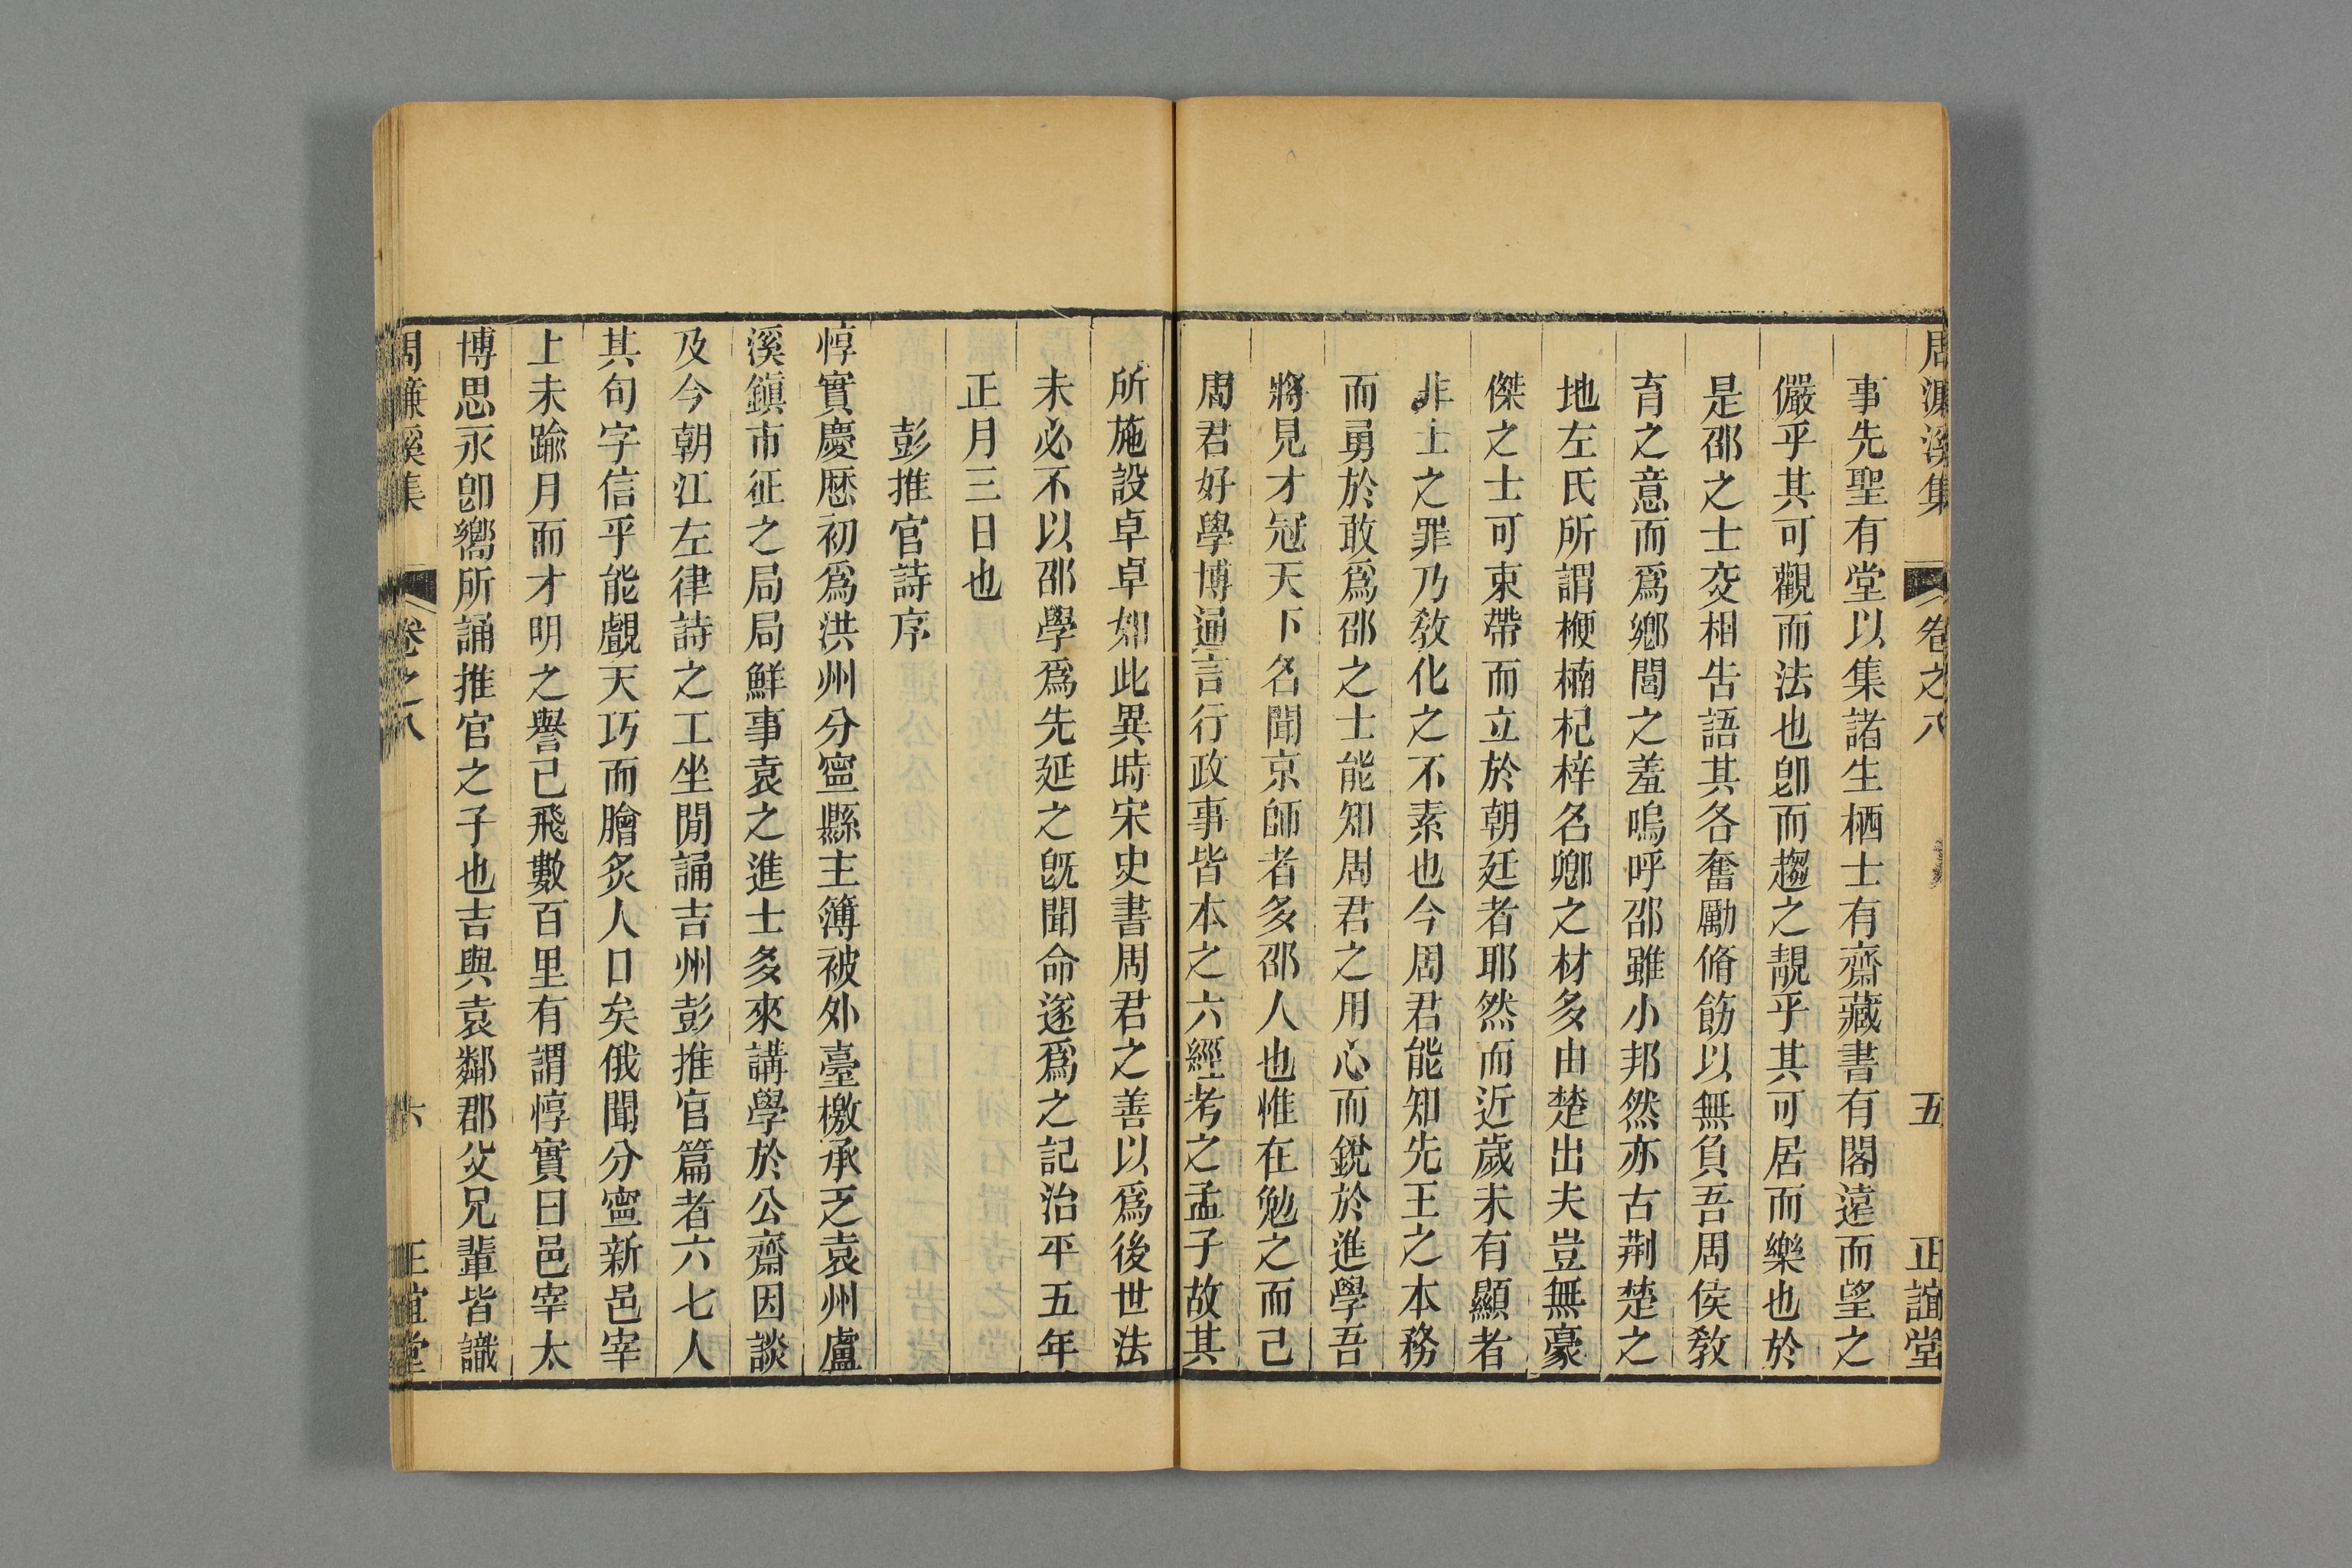 周濂溪集 卷之八 五 正誼堂
事先聖有堂以集諸生栖士有齋藏書有閣遠而望之
儼乎其可觀而法也卽而趨之靚乎其可居而樂也於
是邵之士交相告語其各奮勵脩飭以無負吾周侯敎
育之意而爲鄉閭之羞嗚呼邵雖小邦然亦古荆楚之
地左氏所謂楩楠杞梓名卿之材多由楚出夫豈無豪
傑之士可束帶而立於朝廷者耶然而近歲未有顯者
非士之罪乃敎化之不素也今周君能知先王之本務
而勇於敢爲邵之士能知周君之用心而銳於進學吾
將見才冠天下名聞京師者多邵人也惟在勉之而已
周君好學博通言行政事皆本之六經考之孟子故其
所施設卓卓如此異時宋史書周君之善以爲後世法
未必不以邵學爲先延之旣聞命遂爲之記治平五年
正月三日也
彭推官詩序
惇實慶厯初爲洪州分寧縣主簿被外臺檄承乏袁州盧
溪鎭市征之局局鮮事袁之進士多來講學於公齋因談
及今朝江左律詩之工坐閒誦吉州彭推官篇者六七人
其句字信乎能覰天巧而膾炙人口矣俄聞分寧新邑宰
上未踰月而才明之譽已飛數百里有謂惇實曰邑宰太
博思永卽嚮所誦推官之子也吉與袁鄰郡父兄輩皆識
周濂溪集 卷之八 六 正誼堂